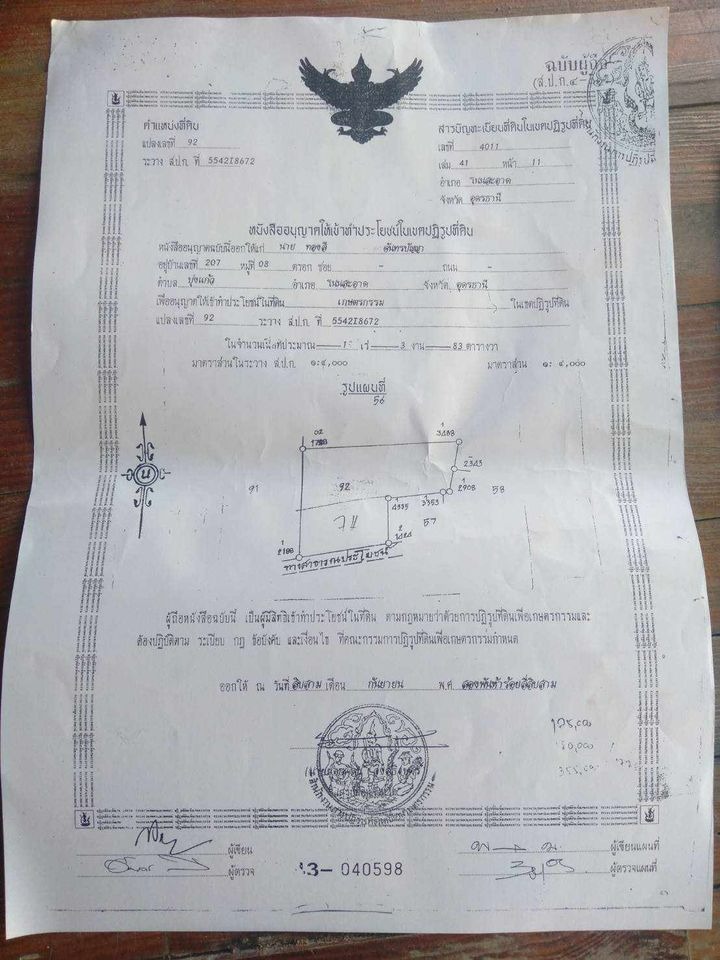 ฉบับผู้ถือ
(ส.ป.ก.๔-
ตำแหน่งที่ดิน
แปลงเลขที่ 92
ระวาง ส.ป.ก. ที่ 5542I8672
สารบัญทะเบียนที่ดินในเขตปฏิรูปที่ดิน
เลขที่ 4011
เล่ม 41 หน้า 11
อำเภอ โนนสะอาด
จังหวัด อุดรธานี
หนังสืออนุญาตให้เข้าทำประโยชน์ในเขตปฏิรูปที่ดิน
หนังสืออนุญาตฉบับนี้ออกให้แก่ นาย ทองลี จันทรปัญญา
อยู่บ้านเลขที่ 207 หมู่ที่ 08 ตรอก ซอย - ถนน -
ตำบล บุ่งแก้ว อำเภอ โนนสะอาด จังหวัด อุดรธานี
เพื่ออนุญาตให้เข้าทำประโยชน์ในที่ดิน เกษตรกรรม ในเขตปฏิรูปที่ดิน
แปลงเลขที่ 92 ระวาง ส.ป.ก. ที่ 5542I8672
ในจำนวนเนื้อที่ประมาณ ไร่ 3 งาน 83 ตารางวา
มาตราส่วนในระวาง ส.ป.ก. ๑:๔,๐๐๐ มาตราส่วน ๑: ๔,๐๐๐
รูปแผนที่
56
02
1
3488
2343
91
92
1
2908
58
1
4335
1
3353
57
1
2188
2
3424
ทางสาธารณประโยชน์
น
ผู้ถือหนังสือฉบับนี้ เป็นผู้มีสิทธิเข้าทำประโยชน์ในที่ดิน ตามกฎหมายว่าด้วยการปฏิรูปที่ดินเพื่อเกษตรกรรมและ
ต้องปฏิบัติตาม ระเบียบ กฎ ข้อบังคับ และเงื่อนไข ที่คณะกรรมการปฏิรูปที่ดินเพื่อเกษตรกรรมกำหนด
ออกให้ ณ วันที่ สิบสาม เดือน กันยายน พ.ศ. สองพันห้าร้อยสี่สิบสาม
175,000
ผู้เขียน
ผู้ตรวจ
43-040598
ผู้เขียนแผนที่
ผู้ตรวจแผนที่